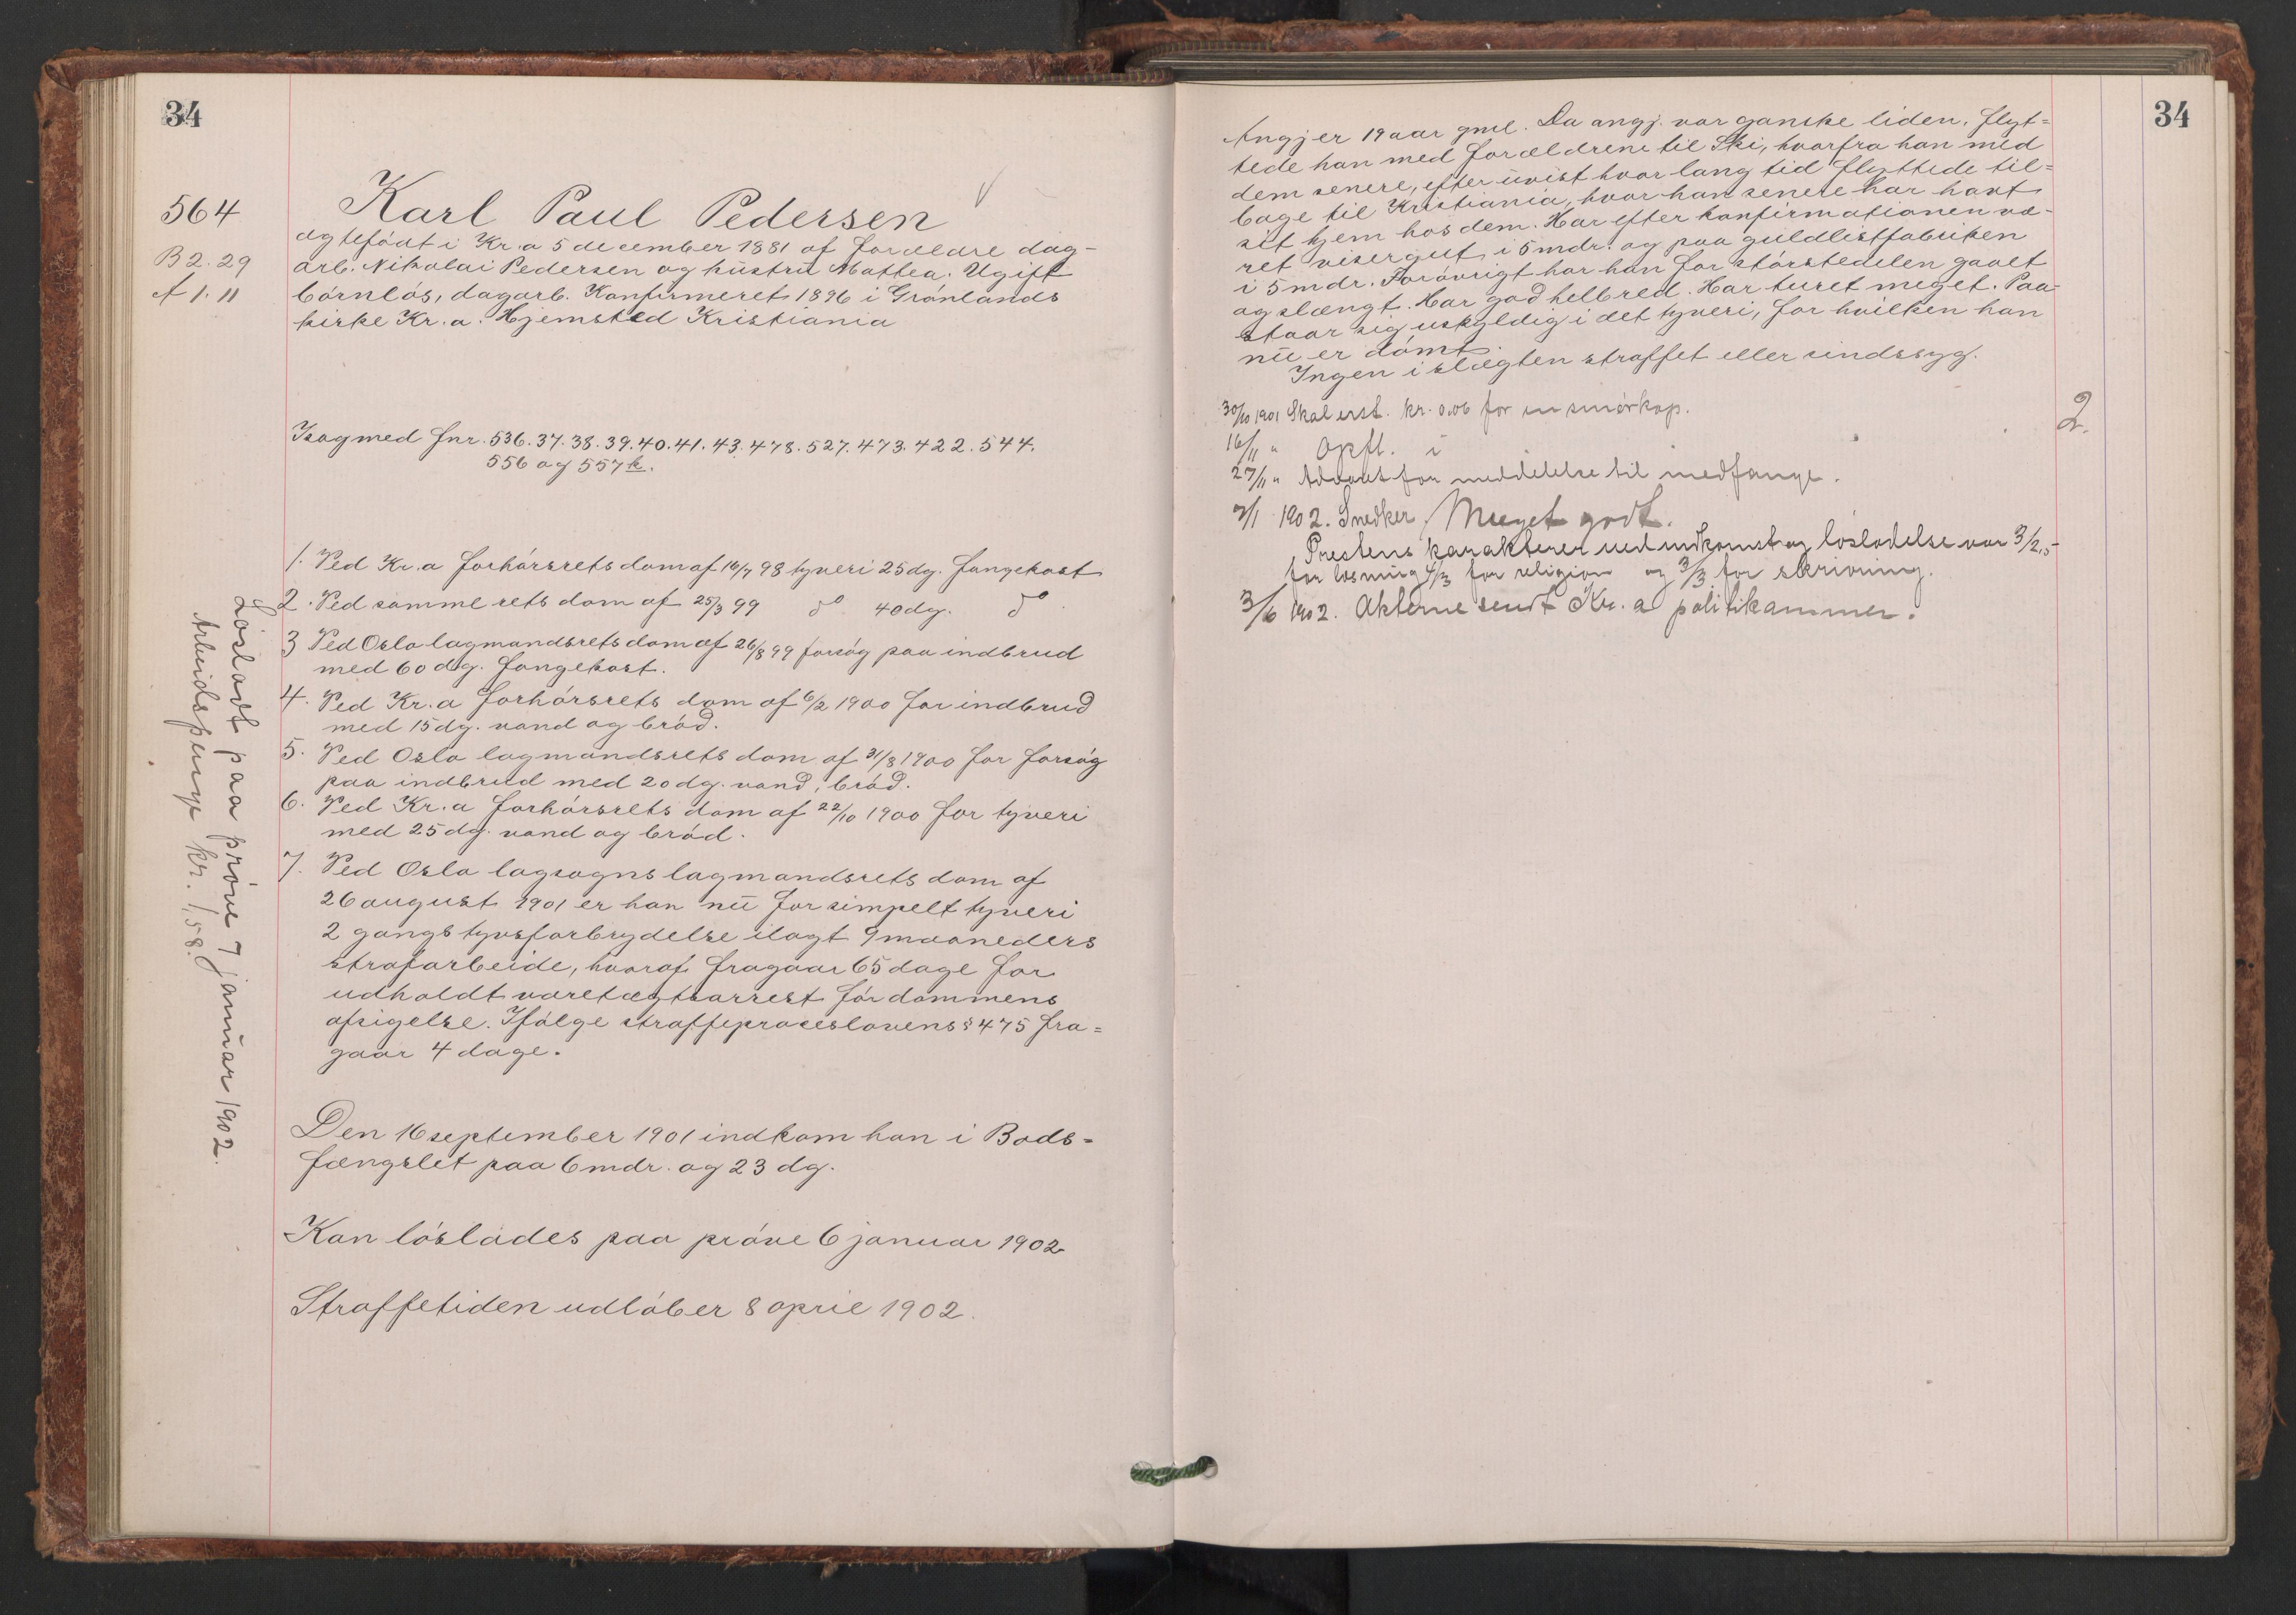 34
564
B 2. 29
A 1. 11
Karl Paul Pedersen
ægtefødt i Kr.a 5 december 1881 af forældre dag-
arb. Nikolai Pedersen og hustru Mathea. Ugift
børnløs, dagarb. Konfirmeret 1896 i Grønlands
kirke Kr.a. Hjemsted Kristiania
I sag med fnr. 536. 37. 38. 39. 40. 41. 43. 478. 527. 473. 422. 544.
556 og 557
1. Ved Kr.a forhørsrets dom af 16/7 98 tyveri 25 dg. fangekost
2. Ved samme rets dom af 25/3 99 do 40 dg. do
3 Ved Oslo lagmandsrets dom af 26/8 99 forsøg paa indbrud
med 60 dg. fangekost.
4. Ved Kr.a forhørsrets dom af 6/2 1900 for indbrud
med 15 dg. vand og brød.
5. Ved Oslo lagmandsrets dom af 31/3 1900 for forsøg
paa indbrud med 20 dg. vand, brød.
6. Ved Kr.a forhørsrets dom af 22/10 1900 for tyveri
med 25 dg. vand og brød.
7. Ved Oslo lagsogns lagmandsrets dom af
26 august 1901 er han nu for simpelt tyveri
2 gangs tyvsforbrydelse ilagt 9 maaneders
strafarbeide, hvoraf fragaar 65 dage for
udholdt varetægtsarrest før dommens
afsigelse. Ifølge straffeproceslovens § 475 fra=
gaar 4 dage.
Den 16 september 1901 indkom han i Bods=
fængslet paa 6 mdr. og 23 dg.
Kan løslades paa prøve 6 januar 1902
Straffetiden udløber 8 april 1902.
Løsladt paa prøve 7 januar 1902.
Arbeidspenge kr. 1,58.
34
Angj er 19 aar gml. Da angj. var ganske liden, flyt=
tede han med forældrene til Ski, hvorfra han med
dem senere, efter uvist hvor lang tid flyttede til=
bage til Kristiania, hvor han senere har havt
sit hjem hos dem. Har efter konfirmationen væ-
ret visergut i 5 mdr. og paa guldlistfabriken
i 5 mdr. Forøvrigt har han for størstedelen gaaet
og slængt. Har god helbred. Har turet meget. Paa-
staar sig uskyldig i det tyveri, for hvilken han
nu er dømt.
Ingen i slægten straffet eller sindssyg.
30/10 1901 Skal erst. kr. 0.06 for en smørkop.
16/11 " Opfl. i
27/11 " Advaret for meddelelse til medfange.
2.
7/1 1902. Snedker. Meget godt.
Prestens karakterer ved indkomst og løsladelse var 3/2,5
for læsning 4/3 for religion og 3/3 for skrivning.
3/6 1902. Akterne sendt Kr.a politikammer.